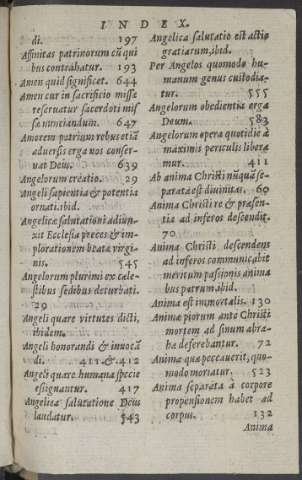 INDEX.
di. 197
Affinitas patrinorum cū qui
bus contrahatur. 193
Amen quid significet. 644
Amen cur in sacrificio missæ
reseruatur sacerdoti mis
sæ nunciandum. 647
Amorem patrium rebus etiā
aduersis erga nos conser-
uat Deus. 639
Angelorum creatio. 29
Angeli sapientia & potentia
ornati. ibid.
Angelicæ salutationi adiun-
xit Ecclesia preces & im-
plorationem beatæ virgi-
nis. 545
Angelorum plurimi ex cæle-
stibus sedibus deturbati.
29
Angeli quare virtutes dicti.
ibidem.
Angeli honorandi & inuocā
di. 411 & 412
Angeli quare humana specie
effignantur. 417
Angelica salutatione Deus
laudatur. 543
Angelica salutatio est actio
gratiarum, ibid.
Per Angelos quomodo hu-
manum genus custodia-
tur. 555
Angelorum obedientia erga
Deum. 583
Angelorum opera quotidie à
maximis periculis libera
mur. 411
Ab anima Christi nūquā se-
parata est diuinitas. 60
Anima Christi re & præsen-
tia ad inferos descendit.
70
Anima Christi descendens
ad inferos communicabit
meritum passionis anima
bus patrum. ibid.
Anima est immortalis. 130
Animæ piorum ante Christi
mortem ad sinum abra-
hæ deferebantur. 72
Animæ quæ peccauerit, quo-
modo moriatur. 523
Anima separata à corpore
propensionem habet ad
corpus. 132
Anima